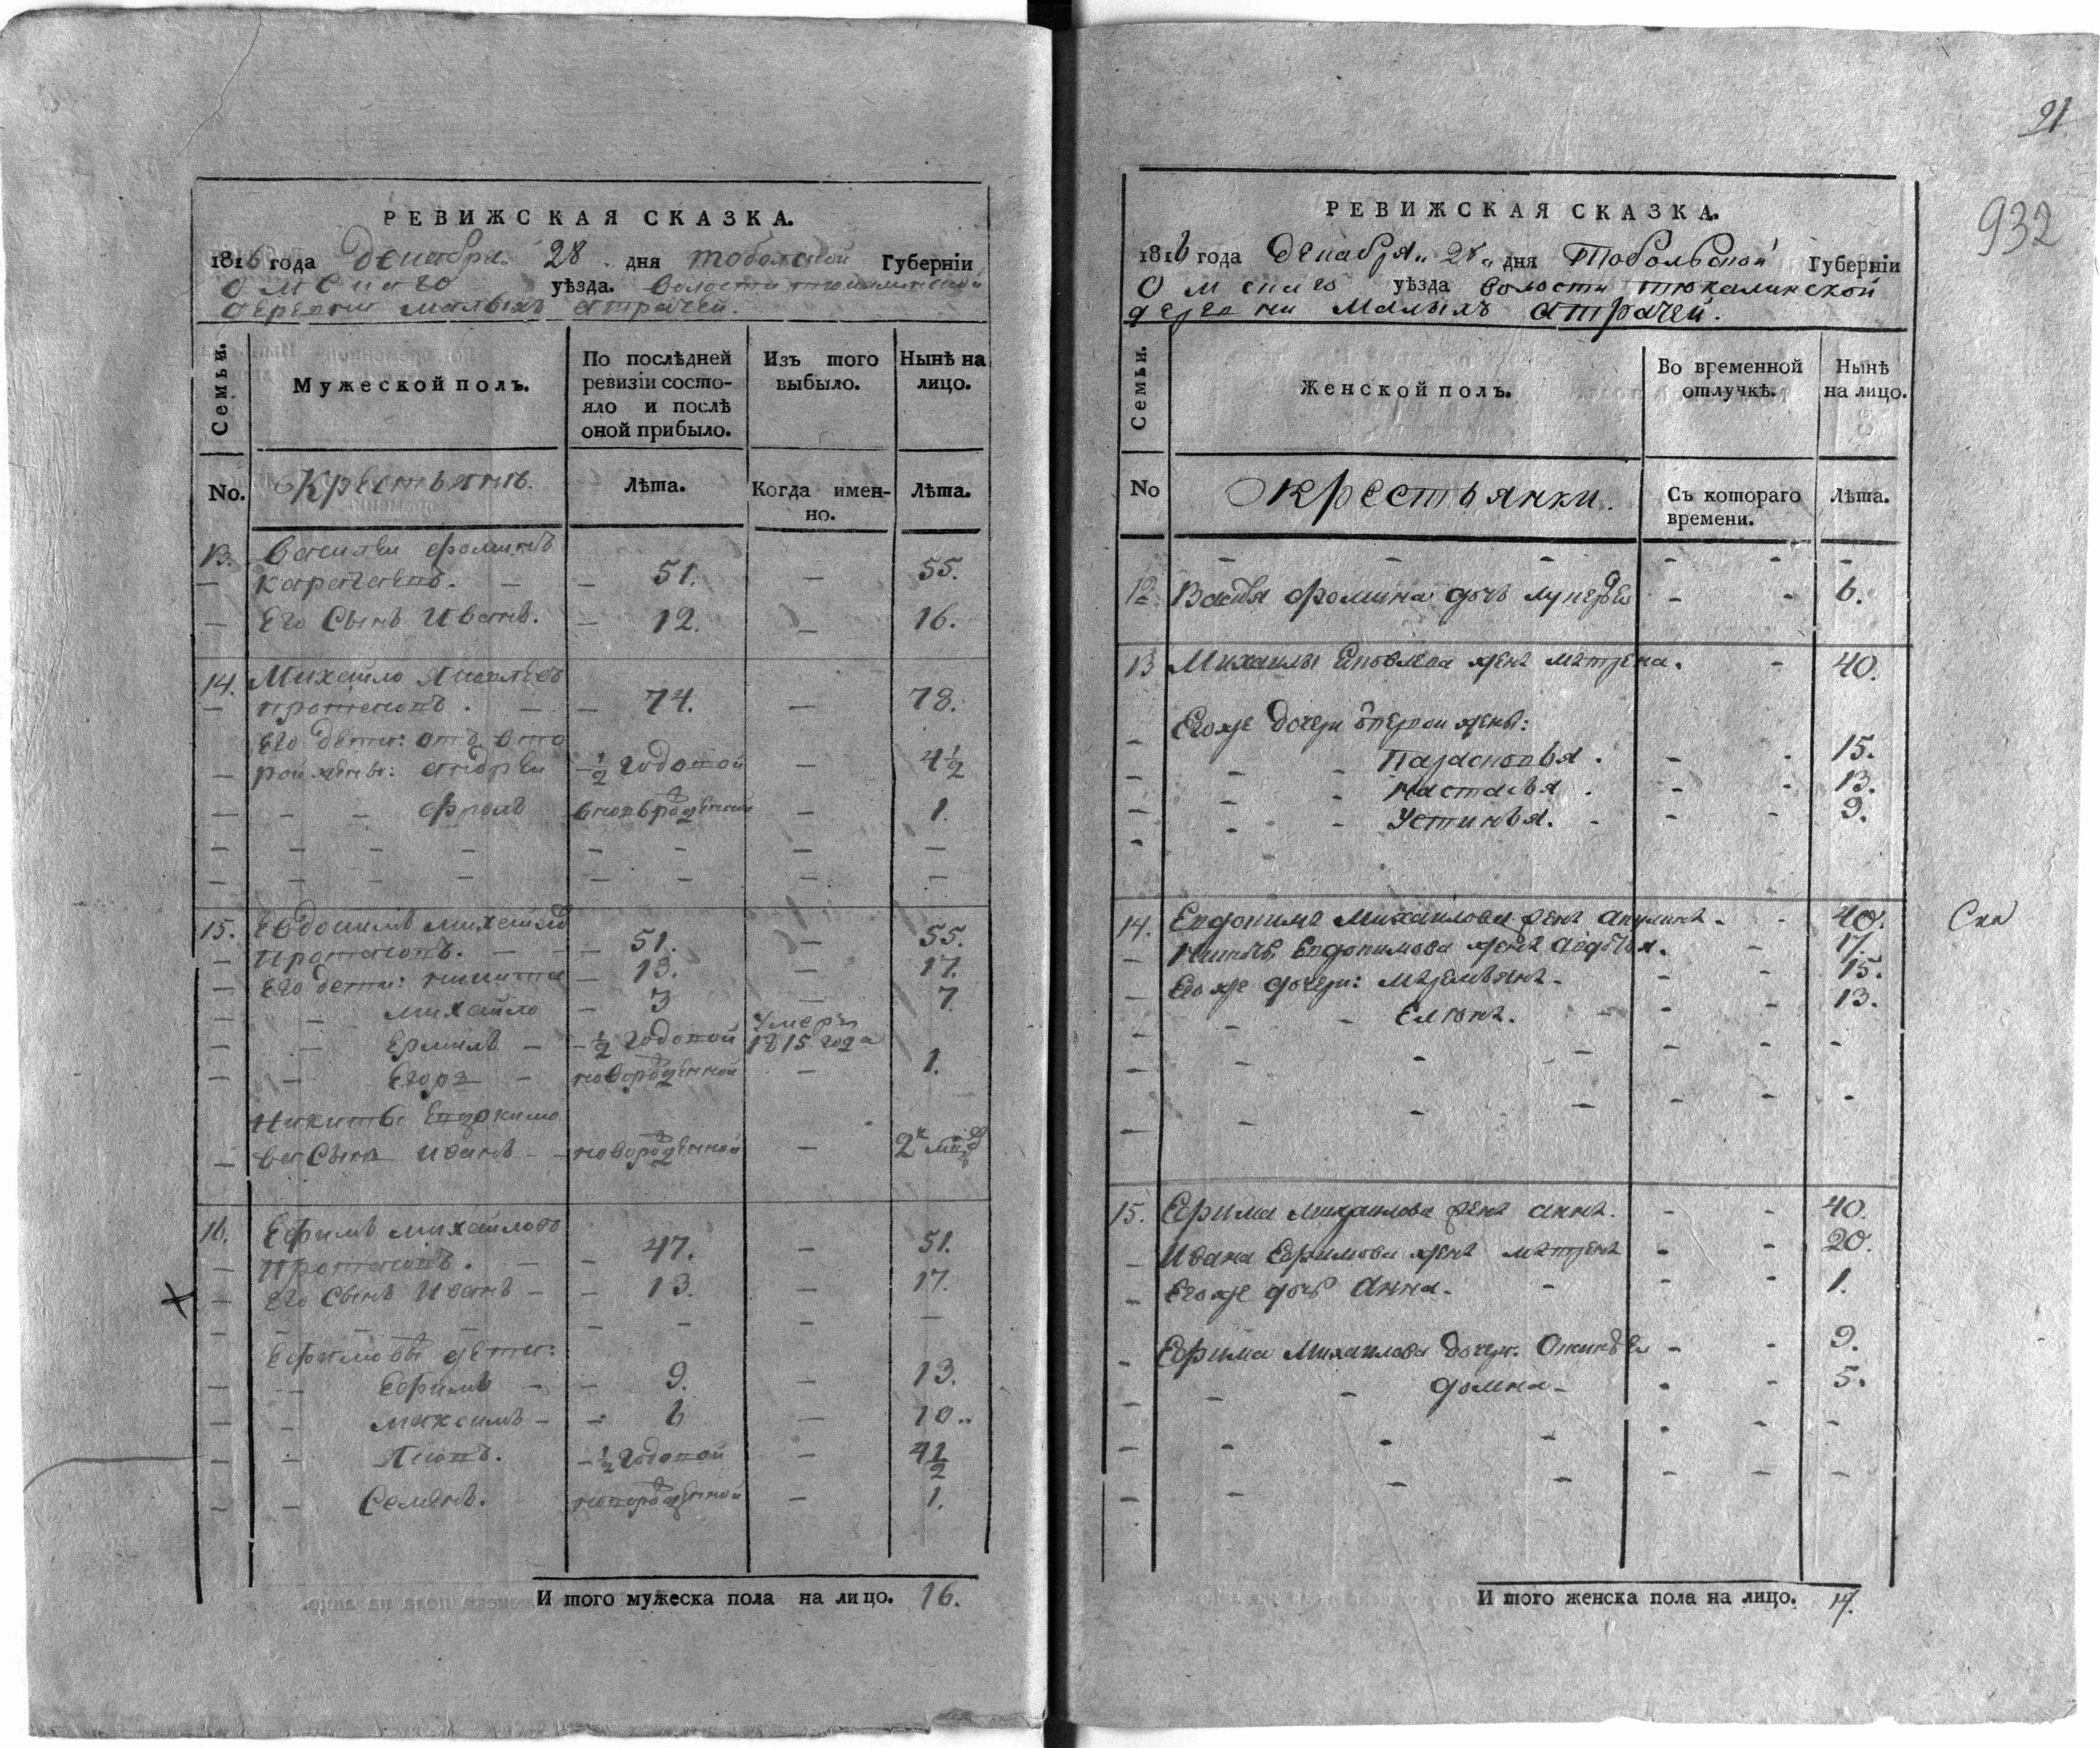 РЕВИЖСКАЯ СКАЗКА.
1816 года Декабря 28 дня тобольской Губерніи
Омскаго уѣзда. волости тюкалинской
деревни малыхъ атрачей.
Семьи.
Мужеской полъ.
По послѣдней ревизіи состояло и послѣ оной прибыло.
Изъ того выбыло.
Нынѣ на лицо.
No.
Крестьянъ.
Лѣта.
Когда именно.
Лѣта.
13. Василеи фоминъ
51. 55.
Его Сынъ Иванъ. 12. 16.
14. Михайло
74. 78.
Его дети: отъ вто
рой жены: андреи ½ годовой 4½
фролъ вновьрожденный 1.
15. Евдокимъ михайловъ
51. 55.
Его дети: никита 13. 17.
михайло 3 7.
Ермилъ ½ годовой умеръ 1815 года
Егоръ новорожденной 1.
Никиты Евдокимо
ва Сынъ иванъ новорожденной 2
16. Ефимъ михайловъ
47. 51.
Его Сынъ Иванъ 13. 17.
Ефимовы дети:
Ефимъ 9. 13.
максимъ 6 10
Яковъ. ½ годовой 4½
Семенъ. новорожденной 1.
И того мужеска пола на лицо. 16.
91
932
РЕВИЖСКАЯ СКАЗКА.
1816 года Декабря 28 дня Тобольской Губерніи
Омскаго уѣзда волости тюкалинской
деревни Малыхъ атрачей.
Семьи.
Женской полъ.
Во временной отлучкѣ.
Нынѣ на лицо.
No
Крестьянки.
Съ котораго времени.
Лѣта.
12 Василья фомина дочь лукерья 6.
13 Михаилы жена матрена. 40.
Егоже дочери первои жены:
Парасковья. 15.
Настасья. 13.
Устинья. 9.
14. Евдокима Михаилова жена акулина 40.
Никиты Евдокимова жена авдотья. 17.
Егоже дочери: маремьяна 15.
Елена. 13.
15. Ефима Михаилова жена анна. 40.
Ивана Ефимова жена матрена 20.
Егоже дочь Анна. 1.
Ефима Михаилова дочери. 9.
домна 5.
И того женска пола на лицо. 14.